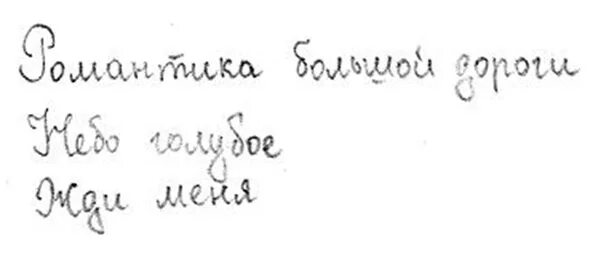 Романтика большой дороги
Небо голубое
Жди меня